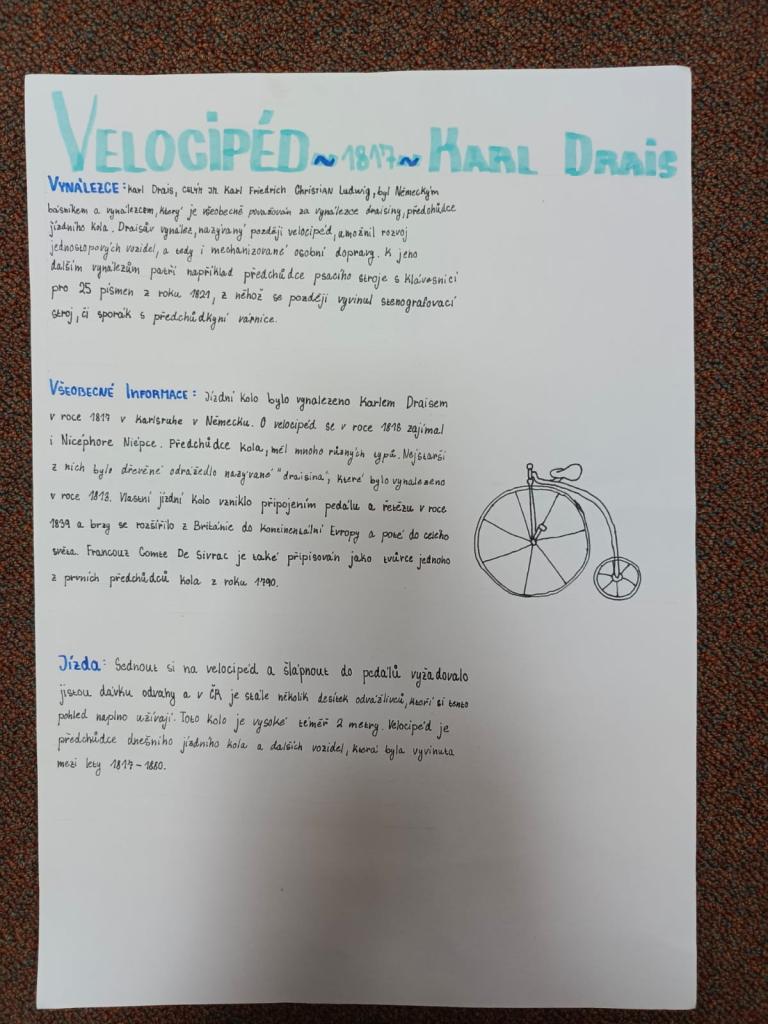 VELOCIPÉD ~ 1817 ~ KARL DRAIS
VYNÁLEZCE: Karl Drais, celým jm. Karl Friedrich Christian Ludwig, byl Německým
básníkem a vynálezcem, který je všeobecně považován za vynálezce draisiny, předchůdce
jízdního kola. Draisův vynález, nazývaný později velocipéd, umožnil rozvoj
jednostopových vozidel, a tedy i mechanizované osobní dopravy. K jeho
dalším vynálezům patří například předchůdce psacího stroje s klávesnicí
pro 25 písmen z roku 1821, z něhož se později vyvinul stenografovací
stroj, či sporák s předchůdkyní vařnice.
VŠEOBECNÉ INFORMACE: Jízdní kolo bylo vynalezeno Karlem Draisem
v roce 1817 v Karlsruhe v Německu. O velocipéd se v roce 1818 zajímal
i Nicéphore Niépce. Předchůdce kola, měl mnoho různých typů. Nejstarší
z nich bylo dřevěné odrážedlo nazývané "draisina", které bylo vynalezeno
v roce 1813. Vlastní jízdní kolo vzniklo připojením pedálu a řetězu v roce
1839 a brzy se rozšířilo z Británie do kontinentální Evropy a poté do celého
světa. Francouz Comte De Sivrac je také připisován jako tvůrce jednoho
z prvních předchůdců kola z roku 1790.
Jízda: Sednout si na velocipéd a šlápnout do pedálů vyžadovalo
jistou dávku odvahy a v ČR je stále několik desítek odvážlivců, kteří si tento
pohled naplno užívají. Toto kolo je vysoké téměř 2 metry. Velocipéd je
předchůdce dnešního jízdního kola a dalších vozidel, která byla vyvinuta
mezi lety 1817-1880.